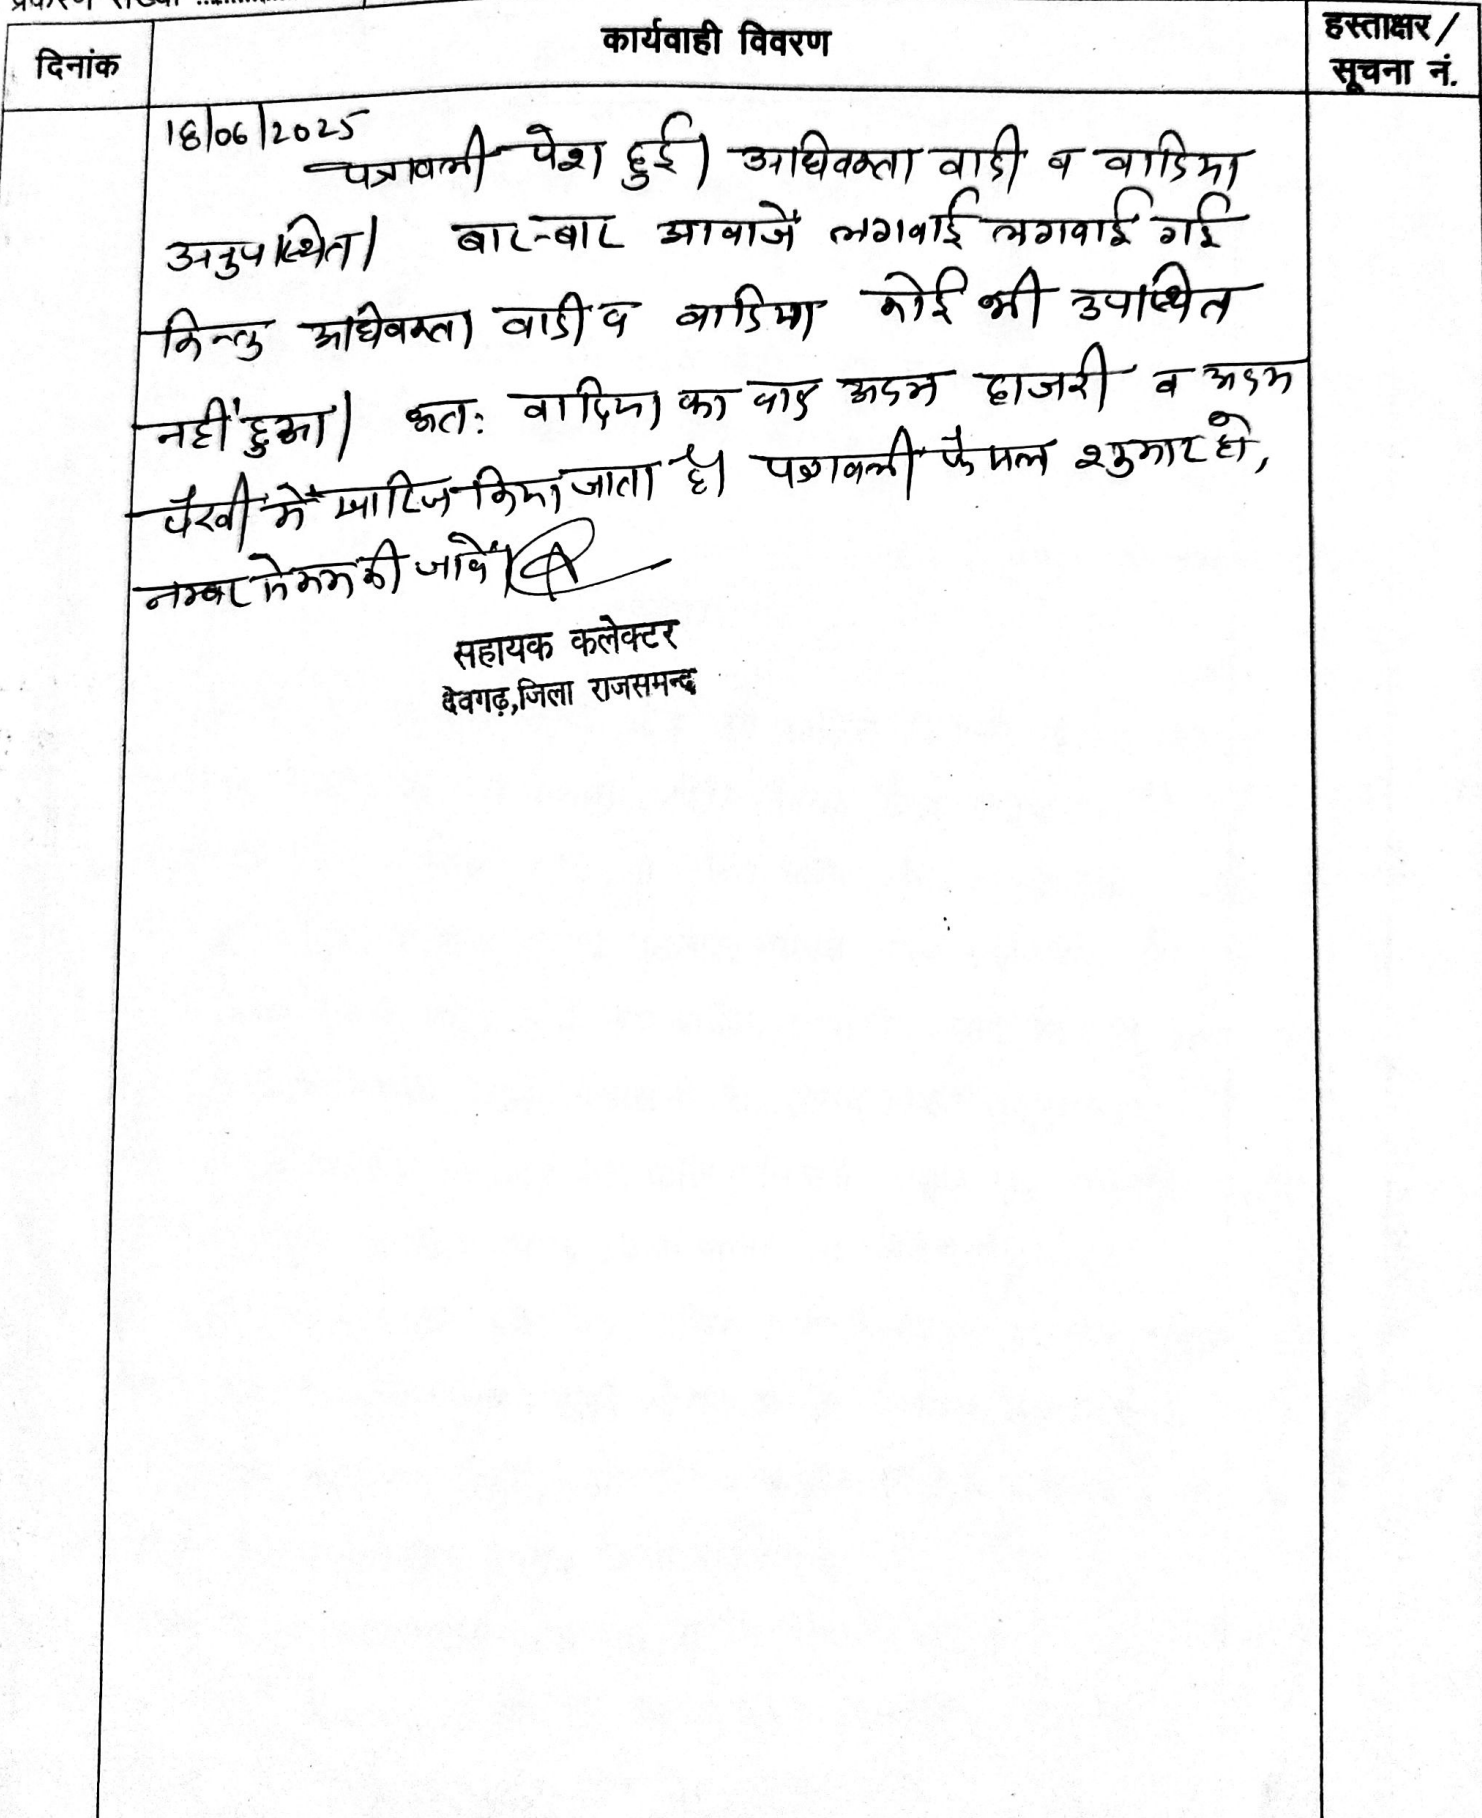 प्रकरण संख्या ..................
दिनांक
कार्यवाही विवरण
हस्ताक्षर /
सूचना नं.
18/06/2025
पत्रावली पेश हुई। अधिवक्ता वादी व वादिया
अनुपस्थित। बार-बार आवाजें लगवाई लगवाई गई
किन्तु अधिवक्ता वादी व वादिया कोई भी उपस्थित
नहीं हुआ। अतः वादिया का वाद अदम हाजरी व अदम
पैरवी में खारिज किया जाता है। पत्रावली फैसल शुमार हो,
नम्बर से कम की जावें।
सहायक कलेक्टर
देवगढ़,जिला राजसमन्द